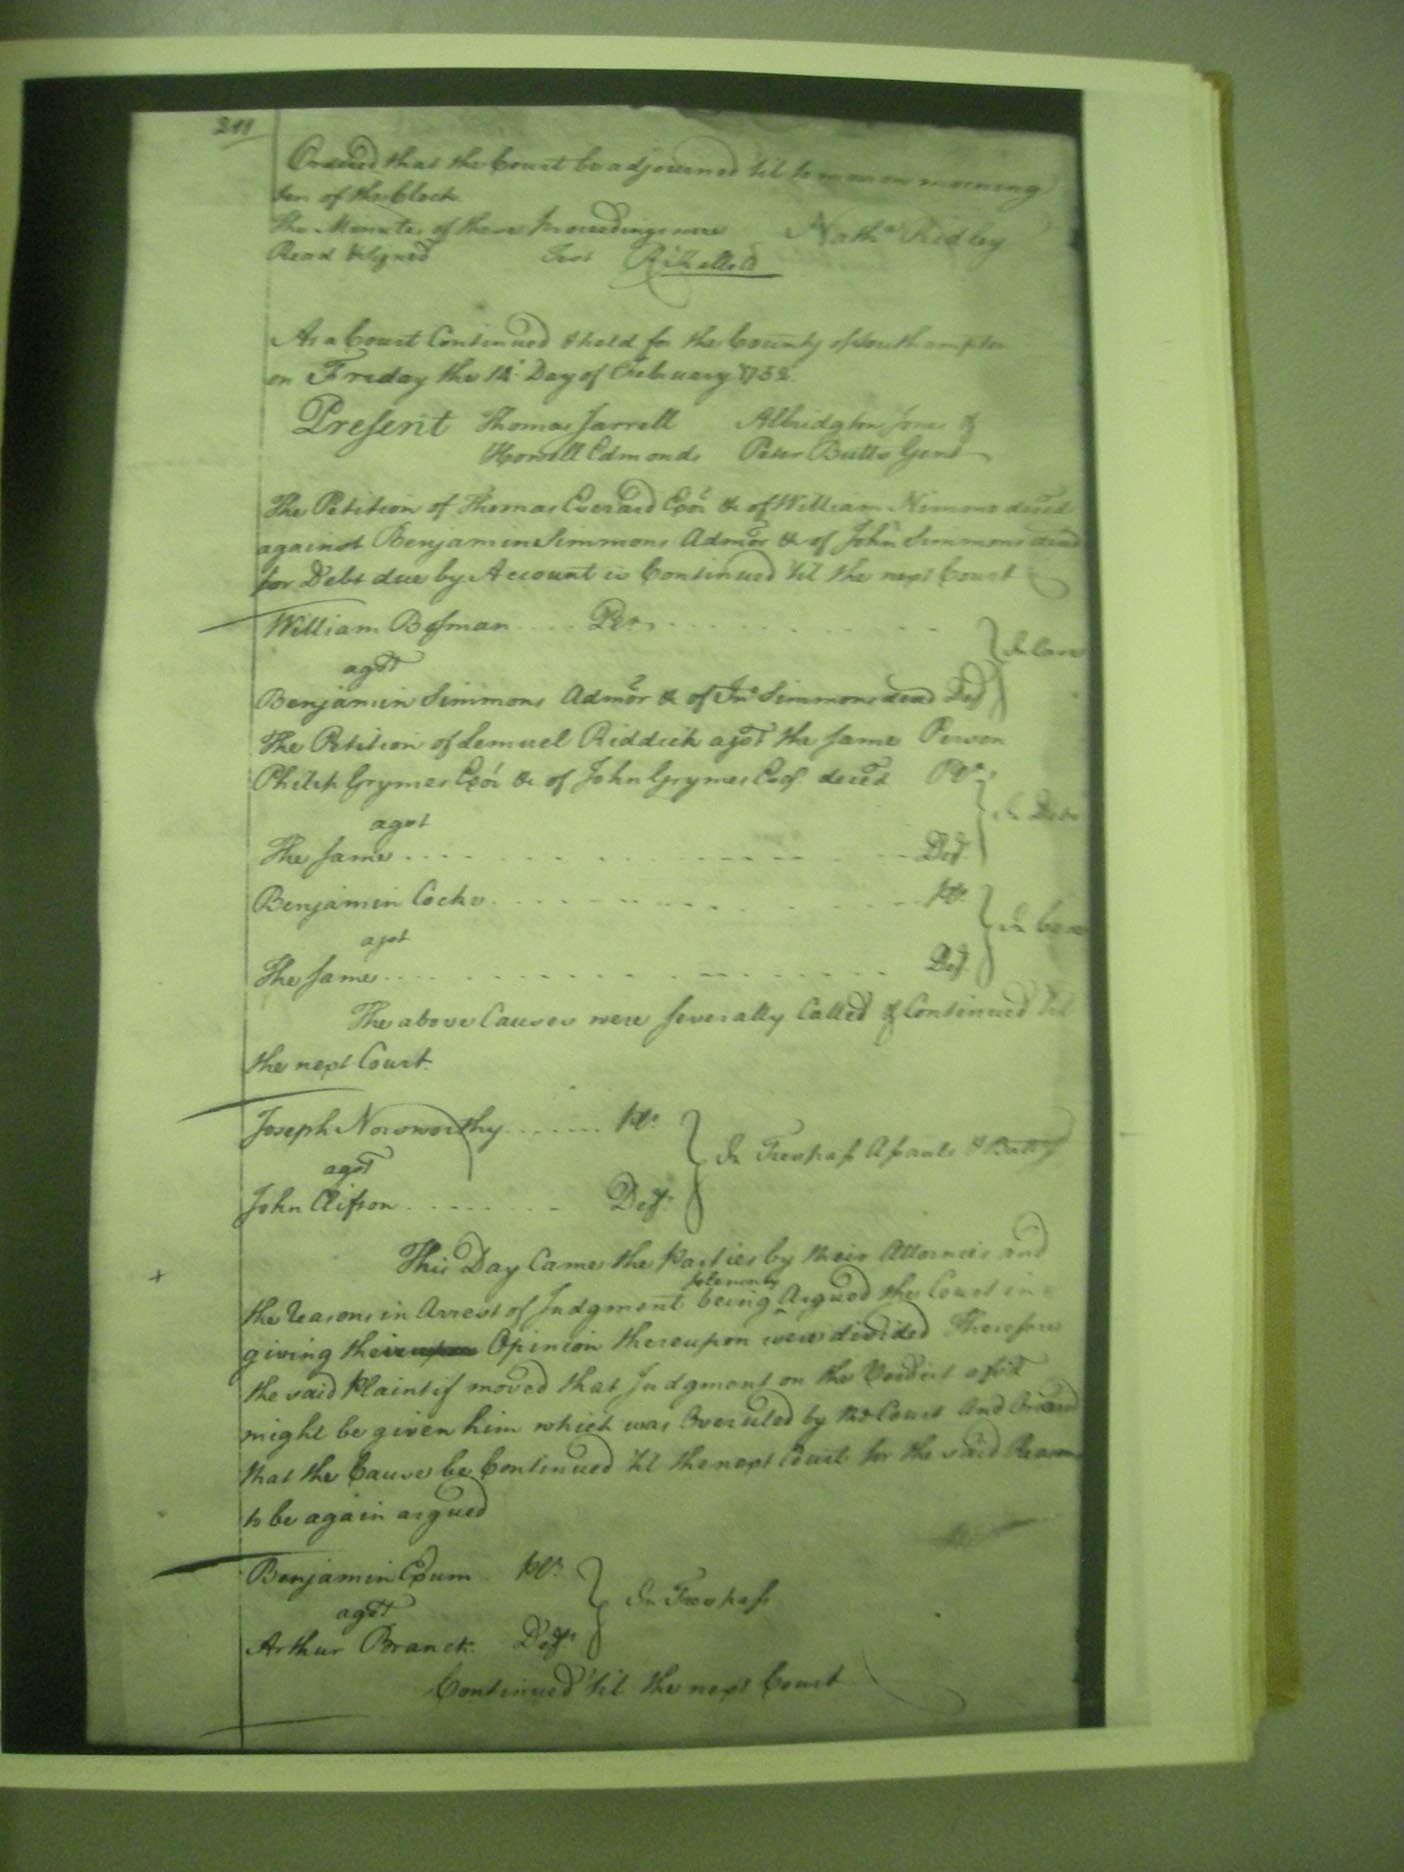 211
Ordered that the Court be adjourned 'til to morrow morning
ten of the Clock
The Minutes of these Proceedings were Nath.ll Ridley
Read & Signed Test R: Kello
At a Court Continued & held for the County of Southampton
on Friday the 14 Day of February 1752
Present Thomas Jarrell Albridgton Jones &
Howell Edmonds Peter Butts Gent
The Petition of Thomas Everard Exor &c of William Nimmo deced
against Benjamin Simmons Admor &c of John Simmons dead
for Debt due by Account is Continued 'til the next Court
William Bosman .... Pet. ..........
agst } In Case
Benjamin Simmons Admor &c of Jno Simmons dead Def
The Petition of Lemuel Riddick agst the same Person
Philip Grymes Exor &c of John Grymes Esqr. deced Plt.
agst } In Debt
The same .......... Def.
Benjamin Cocke .......... Plt.
agst } In Case
The same .......... Def.
The above Causes were severally Called & Continued 'til
the next Court.
Joseph Norsworthy ...... Plt.
agst } In Trespass Assault & Battery
John Clifson ....... Deft.
This Day Came the Parties by their Attorneis and
solemnly
the Reasons in Arrest of Judgment being ^ Argued the Court in
giving their Opinion thereupon were divided Therefore
the said Plaintif moved that Judgment on the Verdict afsd
might be given him which was Overuled by the Court And Ordered
that the Cause be Continued 'til the next Court for the said Reasons
to be again argued
+
Benjamin Exum Plt.
agst } In Trespass
Arthur Branch Deft.
Continued 'til the next Court